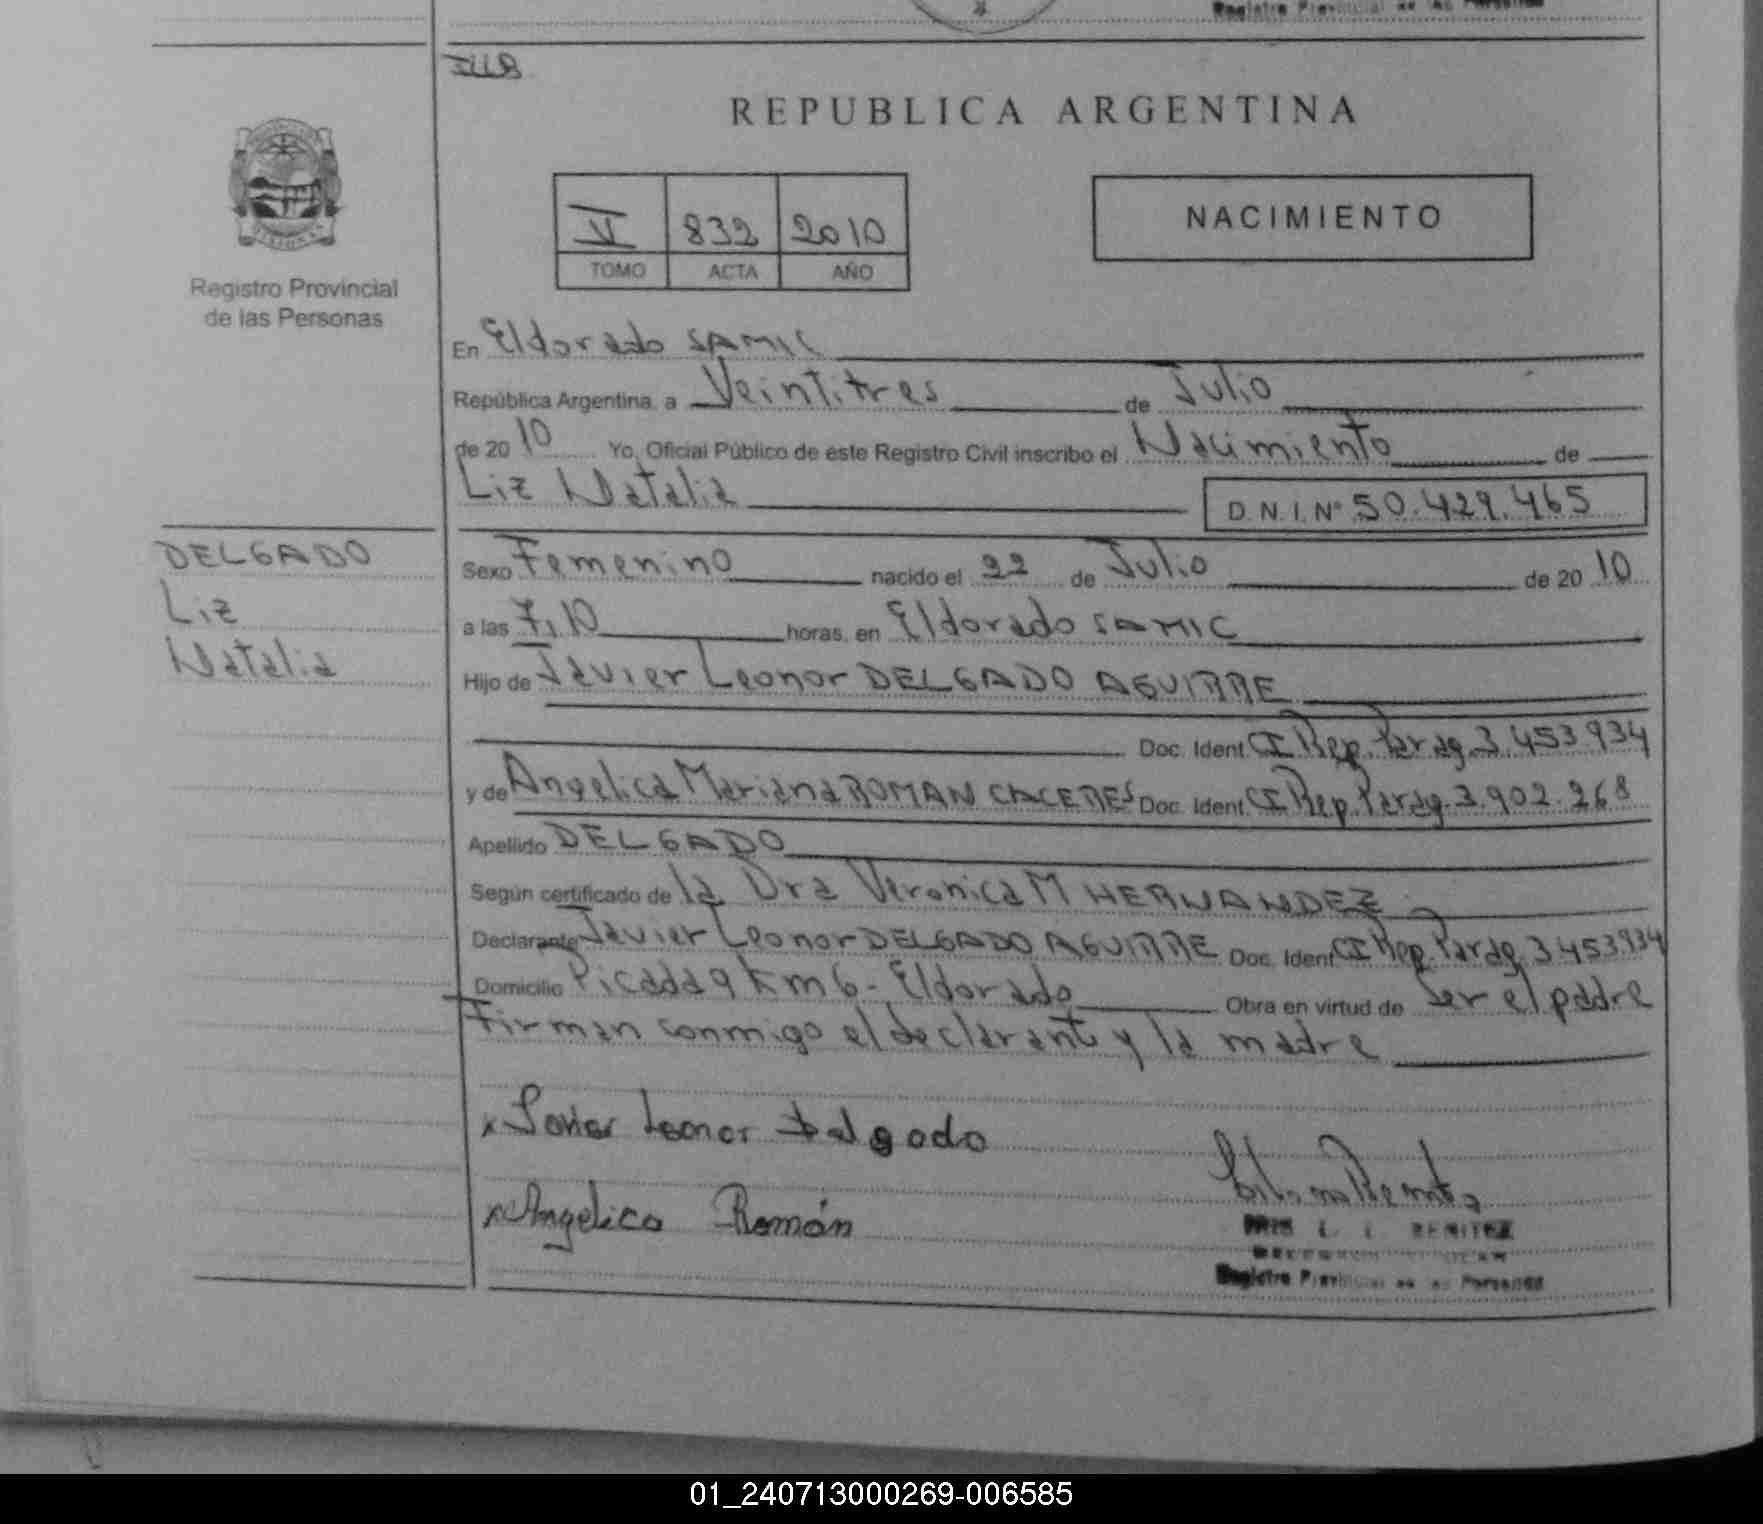 Registro Provincial de las Personas
ILLB
REPUBLICA ARGENTINA
V 832 2010
TOMO ACTA AÑO
NACIMIENTO
Registro Provincial
de las Personas
En Eldorado SAMIC
República Argentina, a Veintitres de Julio
de 2010 Yo, Oficial Público de este Registro Civil inscribo el Nacimiento de
Liz Natalia D.N.I. Nº 50.429.465
DELGADO
Liz
Natalia
Sexo Femenino nacido el 22 de Julio de 2010
a las 7,10 horas, en Eldorado SAMIC
Hijo de Javier Leonor DELGADO AGUIRRE
Doc. Ident. CI Rep. Parag. 3.453.934
y de Angelica Mariana ROMAN CACERES Doc. Ident. CI Rep. Parag. 3.902.268
Apellido DELGADO
Según certificado de la Dra Veronica M HERNANDEZ
Declarante Javier Leonor DELGADO AGUIRRE Doc. Ident. CI Rep. Parag. 3453934
Domicilio Picada 9 Km 6 - Eldorado Obra en virtud de Ser el padre
Firman conmigo el declarante y la madre
x Javier Leonor Delgado
x Angelica Román
BENITEZ
Registro Provincial de las Personas
01_240713000269-006585